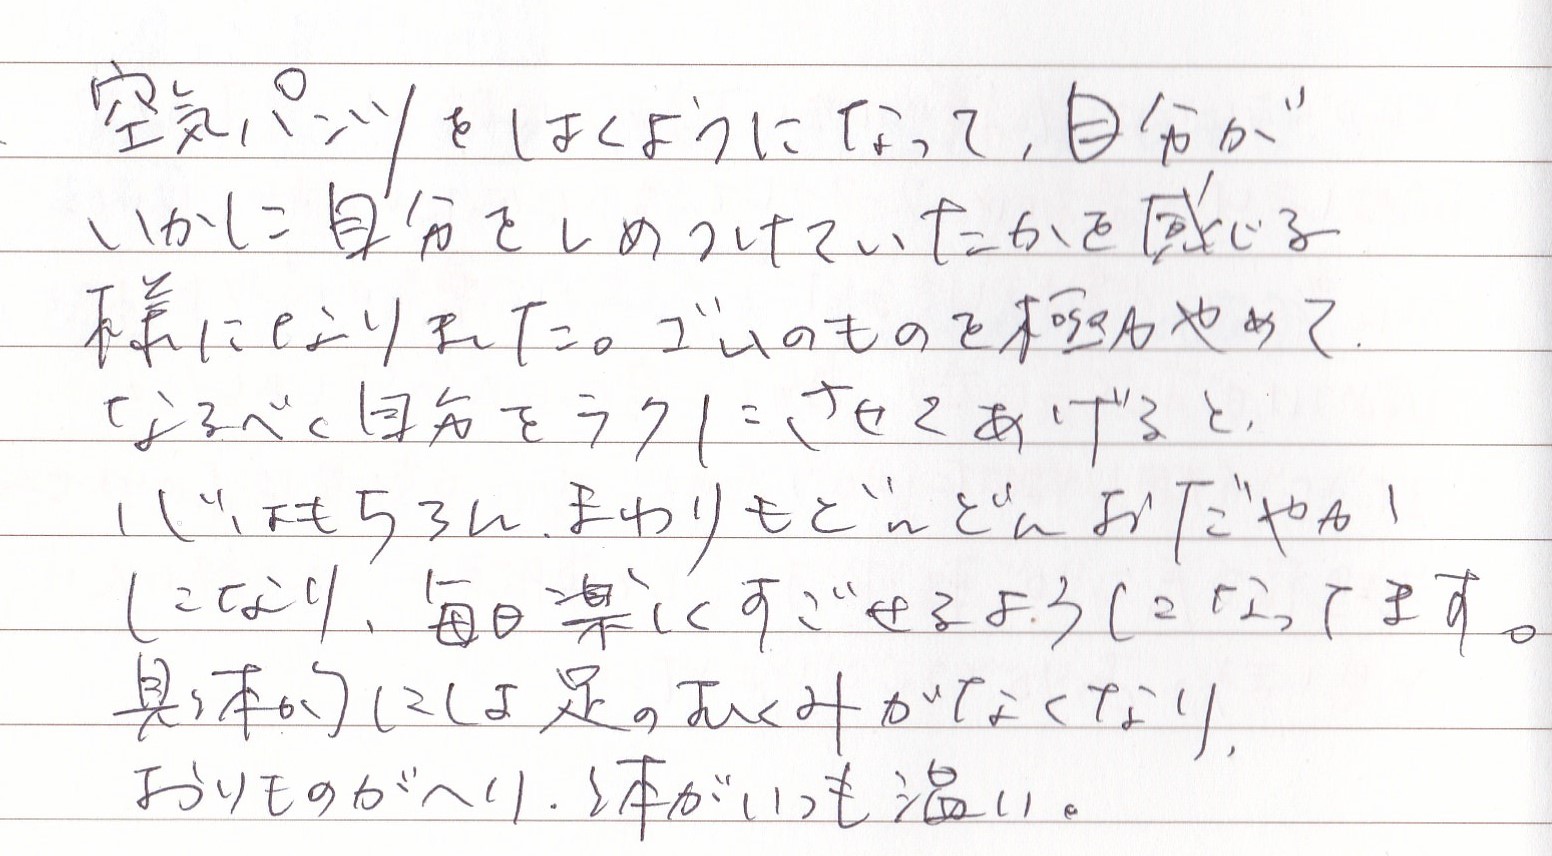 空気パンツをはくようになって、自分が
いかに自分をしめつけていたかを感じる
様になりました。ゴムのものを極力やめて
なるべく自分をラクにさせてあげると、
心はもちろん、まわりもどんどんおだやか
になり、毎日楽しくすごせるようになってます。
具体的には足のむくみがなくなり、
おりものがへり、体がいつも温い。